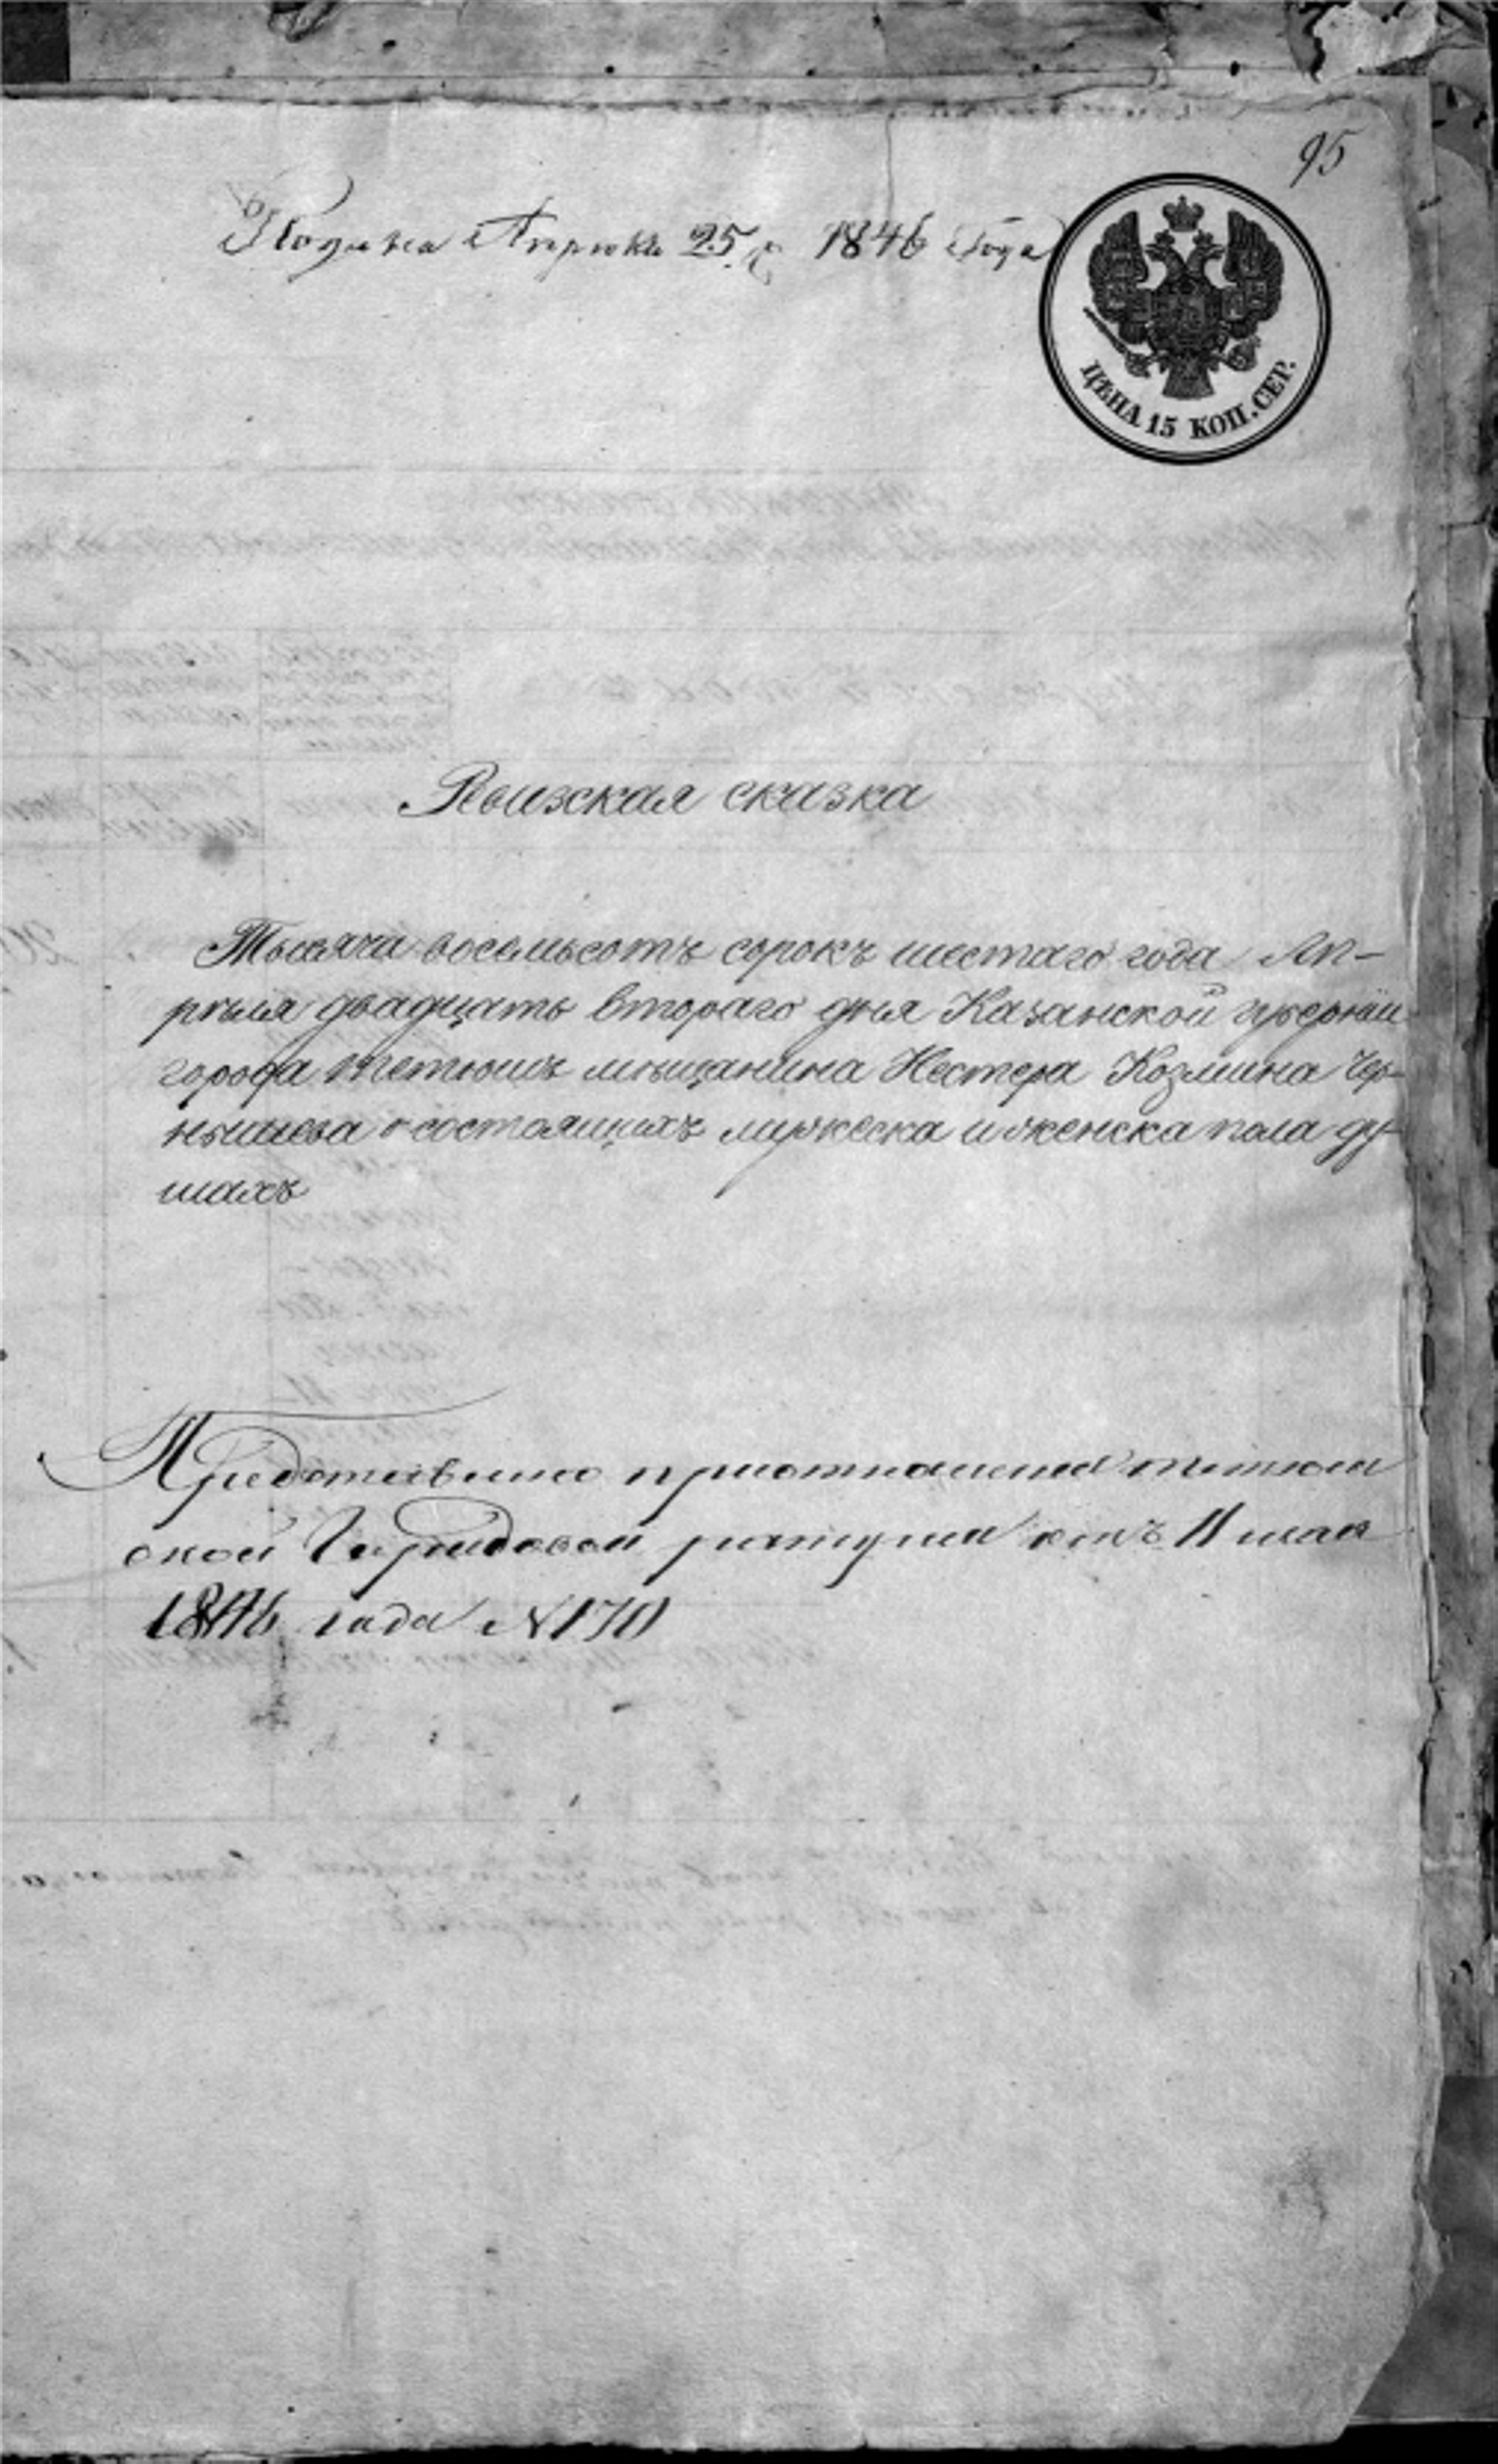 95
Подана Апреля 25 д 1846 Года
ЦѢНА 15 КОП. СЕР.
Ревизская сказка
Тысяча восемьсотъ сорокъ шестаго года Ап-
рѣля двадцать втораго дня Казанской губернiи
города Тетюшъ мѣщанина Нестера Козмина Чер-
нышева о состоящихъ мужеска и женска пола ду-
шахъ
Представлена приотношении тетюш
ской Городовой ратуши отъ 11 мая
1846 года N 170